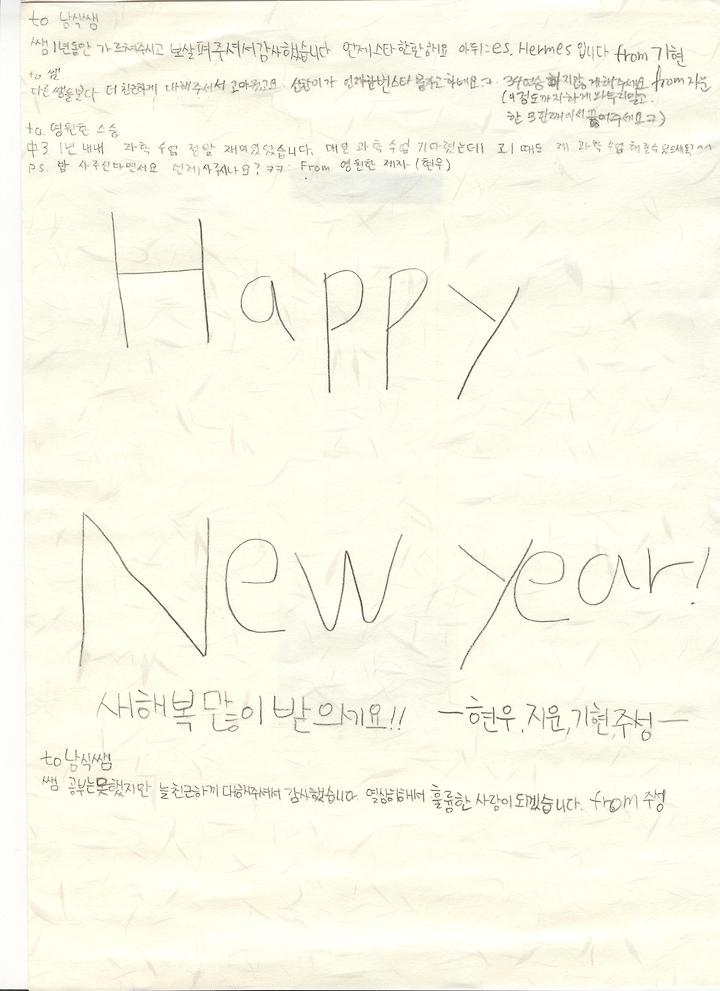 to 남식쌤
쌤 1년동안 가르쳐주시고 보살펴주셔서 감사했습니다 언제 스타 한판해요 아뒤는 es. Hermes 입니다 from 기현
to 쌤
다른 쌤들보다 더 친근하게 대해주셔서 고마웠고요 언제 한번 스타 하네요ㅋ 하지않게해주세요 from 지윤
(4정도까지하게 말고
한 3판째에서 끊어주세요ㅋ)
to. 영원한 스승
中3 1년 내내 과학 수업 정말 재미있었습니다. 매일 과학 수업 기다렸는데! 고1 때도 제 과학 수업 해줄수있으세요? ^^
PS. 밥 사주신다면서요 언제 사주시나요? ㅋㅋ From 영원한 제자 (현우)
Happy
New year!
새해복 많이 받의세요!! -현우,지윤,기현,주성-
to 남식쌤
쌤 공부는못했지만 늘 친근하게 대해주셔서 감사했습니다. 열심히해서 훌륭한 사람이되겠습니다. from 주성